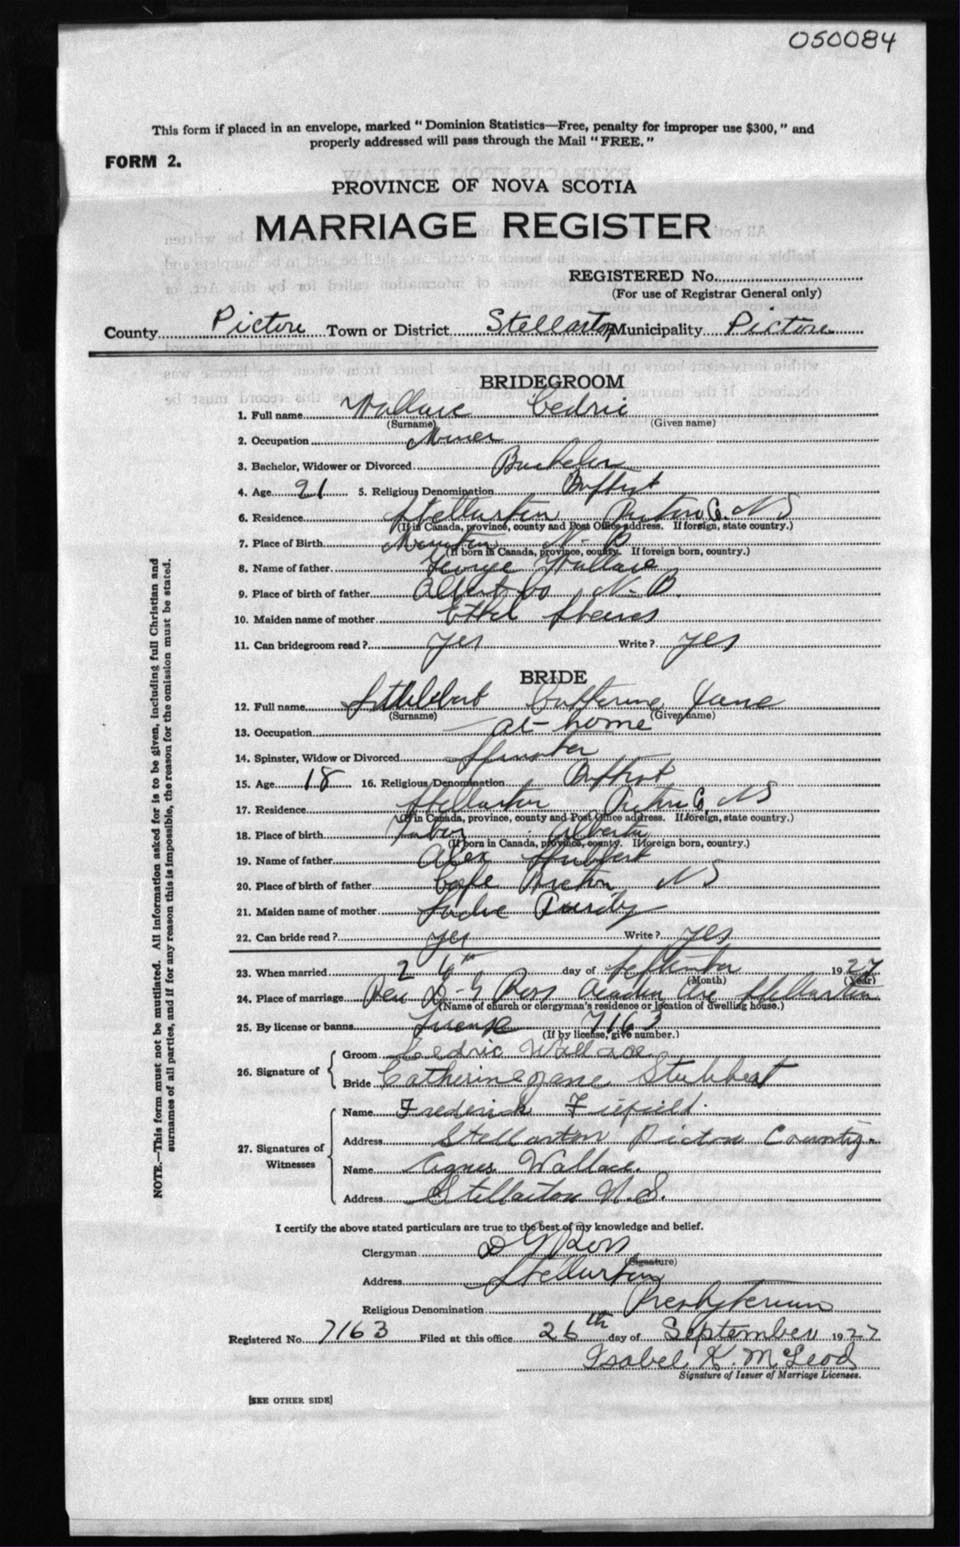 050084
This form if placed in an envelope, marked "Dominion Statistics—Free, penalty for improper use $300," and
properly addressed will pass through the Mail "FREE."
FORM 2.
PROVINCE OF NOVA SCOTIA
MARRIAGE REGISTER
REGISTERED No.
(For use of Registrar General only)
County Pictou Town or District Stellarton Municipality Pictou
BRIDEGROOM
1. Full name Wallace Cedric
(Surname) (Given name)
2. Occupation Miner
3. Bachelor, Widower or Divorced Bachelor
4. Age 21 5. Religious Denomination Baptist
6. Residence Stellarton Pictou C. NS
(If in Canada, province, county and Post Office address. If foreign, state country.)
7. Place of Birth Moncton N-B
(If born in Canada, province, county. If foreign born, country.)
8. Name of father George Wallace
9. Place of birth of father Albert Co N-B.
10. Maiden name of mother Ethel Steeves
11. Can bridegroom read? yes Write? yes
BRIDE
12. Full name Catherine Jane
(Surname) (Given name)
13. Occupation at-home
14. Spinster, Widow or Divorced Spinster
15. Age 18 16. Religious Denomination Baptist
17. Residence Stellarton Pictou C. NS
(If in Canada, province, county and Post Office address. If foreign, state country.)
18. Place of birth Taber Alberta
(If born in Canada, province, county. If foreign born, country.)
19. Name of father Alex Stubbert
20. Place of birth of father Cape Breton NS
21. Maiden name of mother Sadie Purdy
22. Can bride read? yes Write? yes
23. When married 26th day of September 1927
(Month) (Year)
24. Place of marriage Rev D-G Ross Acadia Ave Stellarton
(Name of church or clergyman's residence or location of dwelling house.)
25. By license or banns License 7163
(If by license, give number.)
26. Signature of
Groom Cedric Wallace
Bride Catherine Jane Stubbert
27. Signatures of Witnesses
Name Frederick Fifield.
Address Stellarton Pictou County.
Name Agnes Wallace.
Address Stellarton N.S.
I certify the above stated particulars are true to the best of my knowledge and belief.
Clergyman D G Ross
(Signature)
Address Stellarton
Religious Denomination Presbyterian
Registered No. 7163 Filed at this office 26th day of September 1927
Isabel K. McLeod
Signature of Issuer of Marriage Licenses.
[SEE OTHER SIDE]
NOTE.—This form must not be mutilated. All information asked for is to be given, including full Christian and
surnames of all parties, and if for any reason this is impossible, the reason for the omission must be stated.